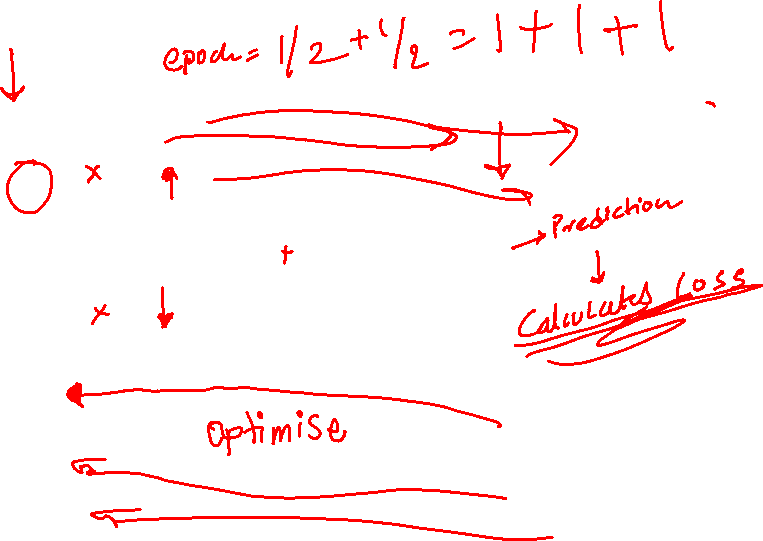 epoch = 1/2 + 1/2 = 1 + 1 + 1
x
→ Prediction
+
↓
Calculates Loss
x
optimise